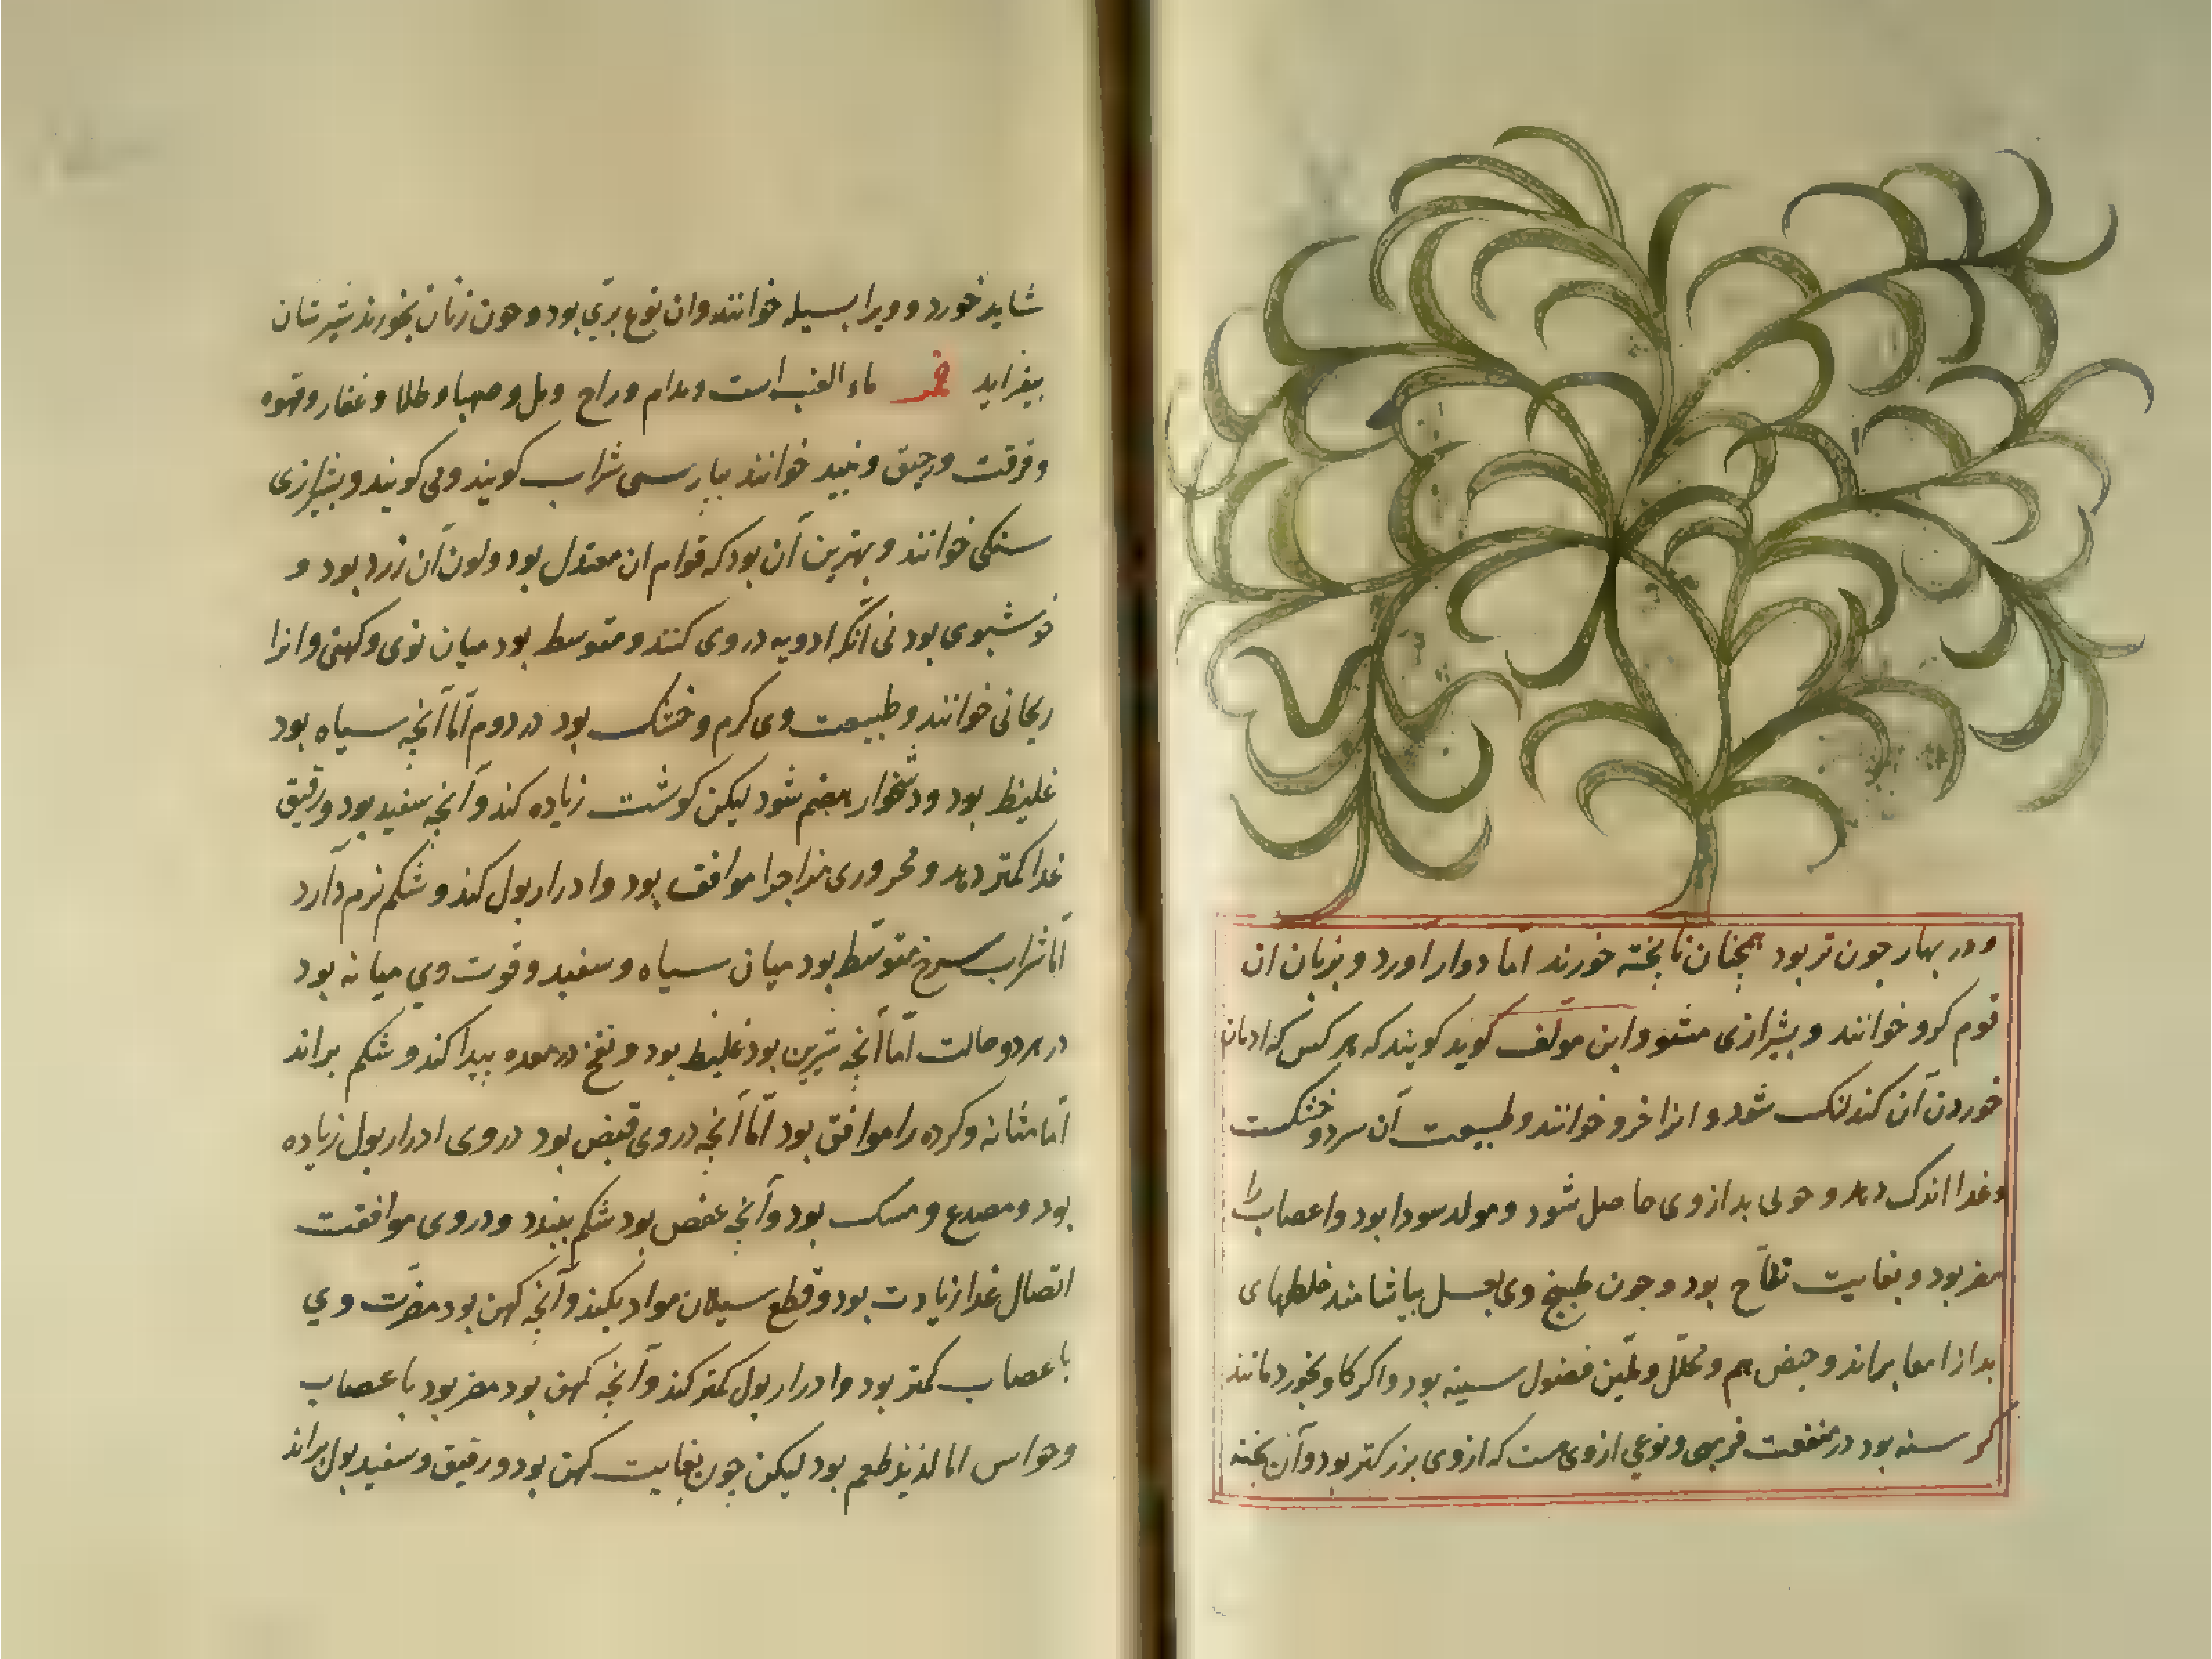 و در بهار جون تر بود همچنان نا پخته خورند اما دوار اورد و بزبان ان
قوم کرو خوانند و بشیرازی مشو و ابن مولف کوید کویند که هر کس که ادمان
خوردن آن کند لنک شود و انرا خرو خوانند و طبیعت آن سرد و خشکست
و غدا اندک دهد و حولی بد از وی حاصل شود و مولد سودا بود و اعصاب را
مضر بود و بغایت نفاح بود و جون طبیخ وی بعسل بیاشامند خلطهای
بد از امعا براند و حیض هم و محلل و ملین فضول سینه بود و اکر کاو بخورد مانند
کر سنه بود در منفعت فربهی و نوعی از وی هست که از وی بزرکتر بود و آن پخته
شاید خورد و ویرا بسیله خوانند و ان نوع بری بود و جون زنان بخورند شیرشان
بیفزاید خمر ماء العنب است و مدام و راح و مل و صهبا و طلا و عقار و قهوه
و قرقت و رحیق و نبید خوانند بپارسی شراب کویند و می کویند و بشیرازی
سنکی خوانند و بهترین آن بود که قوام ان معتدل بود و لون آن زرد بود و
خوشبوی بود نی آنکه ادویه در وی کنند و متوسط بود میان نوی و کهنی و انرا
ریحانی خوانند و طبیعت وی کرم و خشک بود در دوم امّا آنچه سیاه بود
غلیظ بود و دشخوار هضم شود لیکن کوشت زیاده کند و آنچه سفید بود و رقیق
غدا کمتر دهد و محروری مزاجرا موافق بود و ادرار بول کند و شکم نرم دارد
امّا شراب سرخ متوسّط بود میان سیاه و سفید و قوت وی میانه بود
در هر دو حالت امّا آنچه شیرین بود غلیظ بود و نفخ در معده پیدا کند و شکم براند
امّا مثانه و کرده را موافق بود امّا آنچه در وی قبض بود در وی ادرار بول زیاده
بود و مصدع و مسک بود و آنچه عفص بود شکم ببندد و در وی موافقت
اتصال غدا زیادت بود و قطع سیلان مواد بکند و آنچه کهن بود مضرّت وی
باعصاب کمتر بود و ادرار بول کمتر کند و آنچه کهن بود مضر بود باعصاب
و حواس اما لذیذ طعم بود لیکن چون بغایت کهن بود و رقیق و سفید بول براند